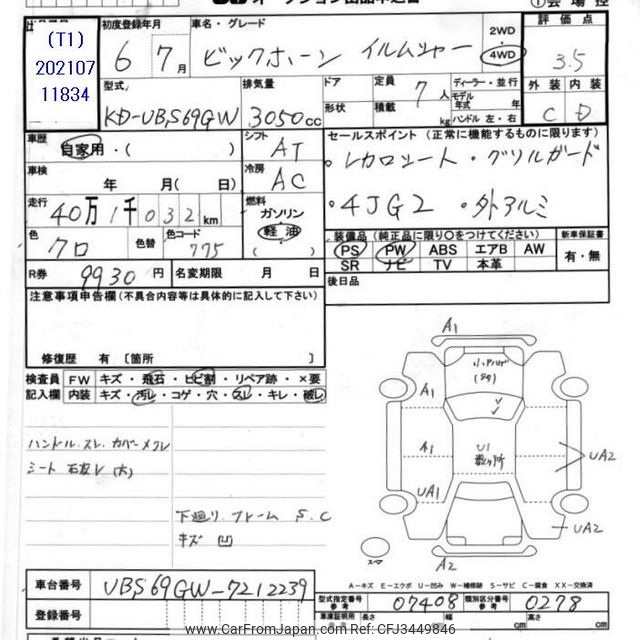 オークション出品申込書
①会場控
(T1)
202107
11834
初度登録年月
6年 7月
車名・グレード
ビックホーン イルムシャー
2WD
4WD
評価点
3.5
型式
KD-UBS69GW
排気量
3050cc
ドア
形状
定員 7人
積載 kg
ディーラー・並行
モデル年式 年
ハンドル 左・右
外装 内装
C D
車歴
自家用・( )
シフト
AT
セールスポイント (正常に機能するものに限ります)
・レカロシート・グリルガード
・4JG2 ・外アルミ
車検
年 月( 日)
冷房
AC
走行
40万1千032km
燃料
ガソリン
軽油
色
クロ
色替
色コード
775
装備品 (純正品に限り○をつけてください)
PS PW ABS エアB AW
SR ナビ TV 本革
新車保証書
有・無
R券
9930円
名変期限 月 日
後日品
注意事項申告欄(不具合内容等は具体的に記入して下さい)
修復歴 有 〔箇所
検査員 FW キズ・飛石・ヒビ割・リペア跡・×要
記入欄 内装 キズ・汚レ・コゲ・穴・スレ・キレ・破レ
ハンドル・スレ カバーメクレ
シート 右友レ(大)
下廻り フレーム S.C
キズ 凹
A1
A1
A1
UA1
U1
数ヶ所
UA2
UA2
A2
スペア
A－キズ E－エクボ U－凹み W－補修跡 S－サビ C－腐食 XX－交換済
車台番号
UBS69GW-7212239
型式指定番号
参考
07408
類別区分番号
参考
0278
登録番号
車庫証明用
参考
長さ cm
幅 cm
高さ
www.CarFromJapan.com Ref: CFJ3449846